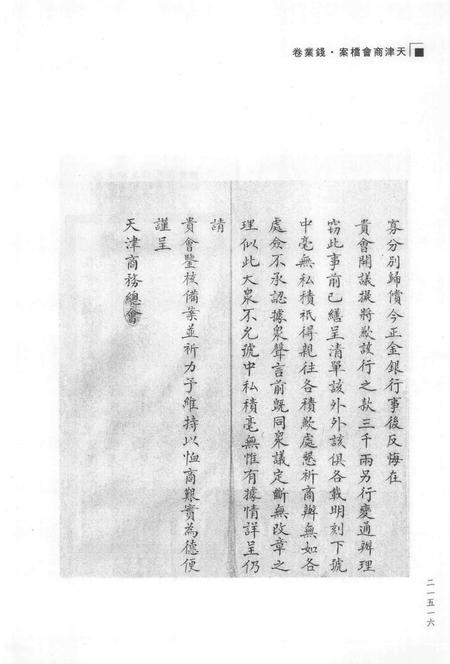 天津商會檔案·錢業卷
寡分別歸償今正金銀行事後反悔在
貴會開議擬將欺該行之款三千兩另行變通辦理
竊此事前已繕呈清單該外外該俱各載明刻下號
中毫無私積祇得親往各積欺處懇祈商辦無如各
處僉不承認據衆聲言前既同衆議定斷無改章之
理似此大衆不允號中私積毫無惟有據情詳呈仍
請
貴會鑒核備案並祈力予維持以恤商艱實為德便
謹呈
天津商務總會
二一五一六